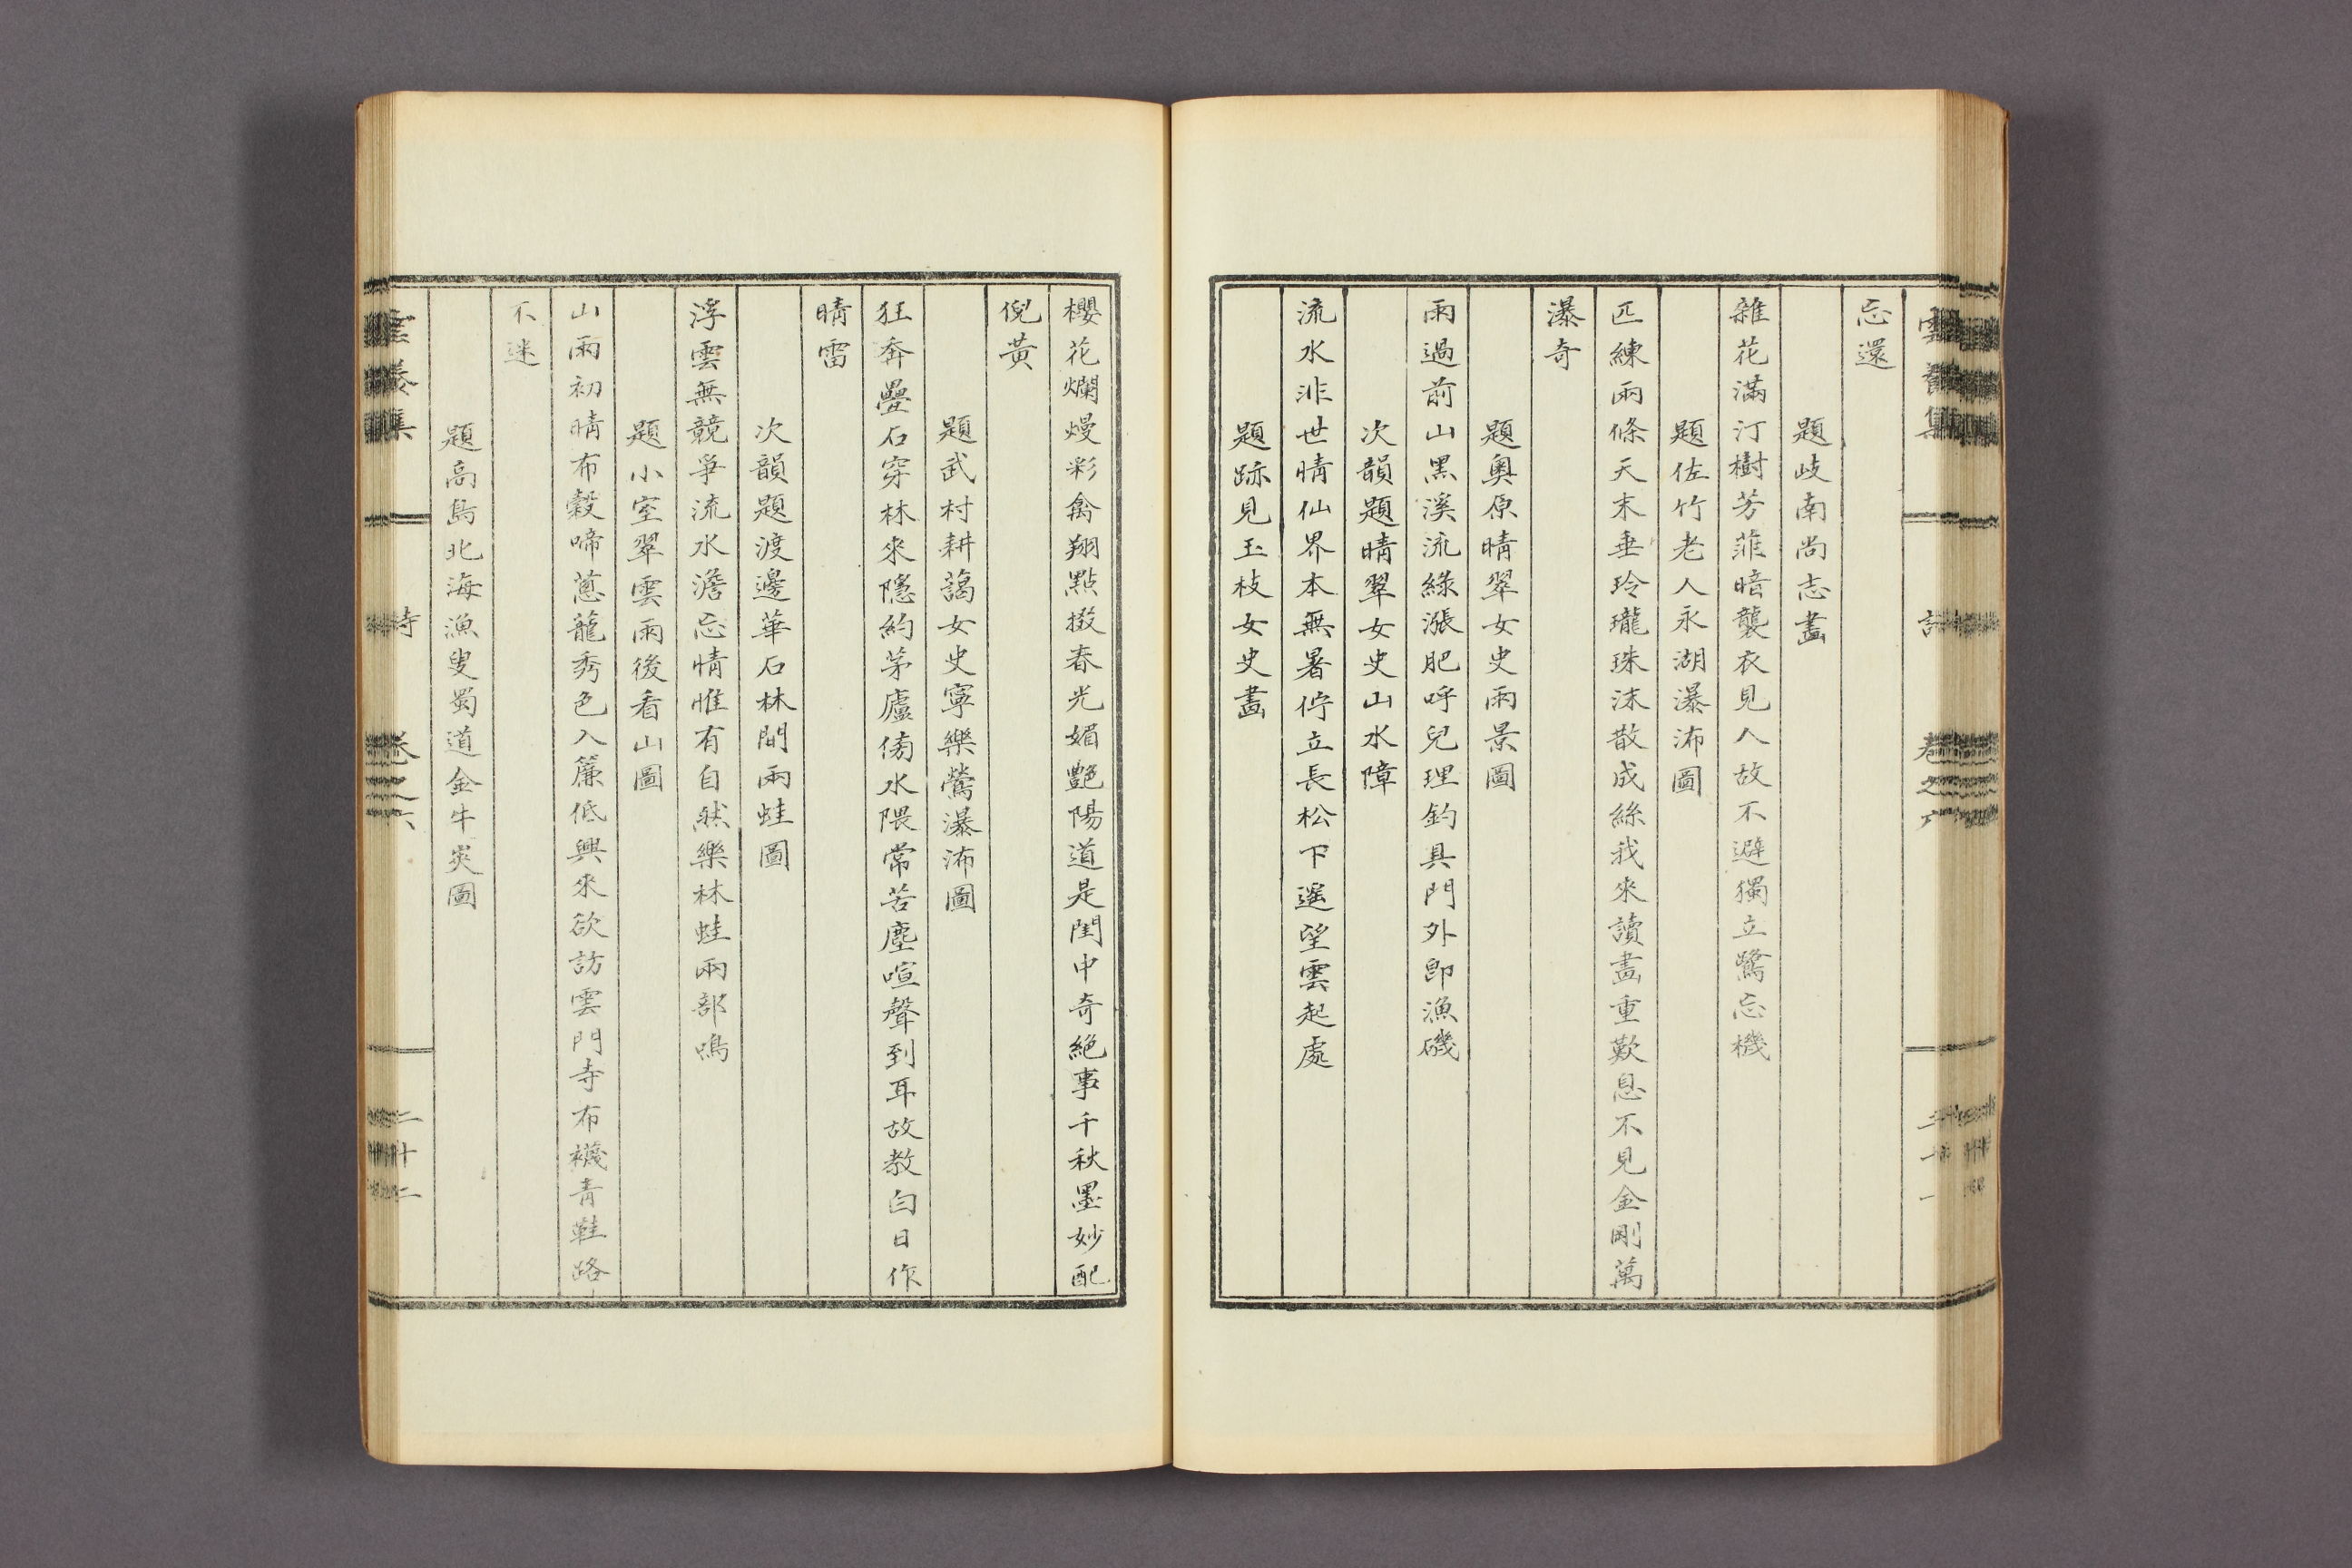 忘還
題岐南尚志畫
雜花滿汀樹芳菲暗襲衣見人故不避獨立鷺忘機
題佐竹老人永湖瀑沛圖
匹練兩條天末垂玲瓏珠沫散成絲我來讀畫重歎息不見金剛萬
瀑奇
題奧原晴翠女史雨景圖
雨過前山黑溪流綠漲肥呼兒理釣具門外卽漁磯
次韻題晴翠女史山水障
流水非世情仙界本無暑佇立長松下遙望雲起處
題跡見玉枝女史畫
櫻花爛熳彩禽翔點掇春光媚艷陽道是閨中奇絕事千秋墨妙配
倪黃
題武村耕藹女史寧樂鶯瀑沛圖
狂奔疊石穿林來隱約茅廬傍水隈常苦塵喧聲到耳故教白日作
晴雷
次韻題渡邊華石林間兩蛙圖
浮雲無競爭流水澹忘情惟有自然樂林蛙兩部鳴
題小室翠雲雨後看山圖
山雨初晴布穀啼蔥蘢秀色入簾低興來欲訪雲門寺布襪青鞋路
不迷
題高島北海漁叟蜀道金牛峽圖
詩 卷之六 二十二